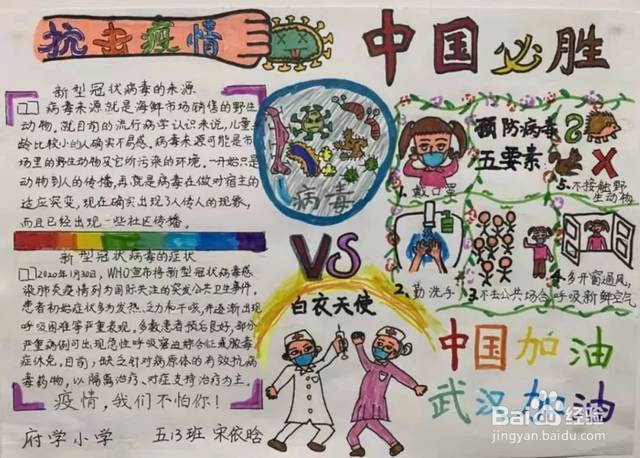 抗击疫情
中国必胜
新型冠状病毒的来源
病毒来源就是海鲜市场销售的野生
动物。就目前的流行病学认识来说,儿童年
龄比较小的人确实不易感。病毒来源可能是市
场里的野生动物及它所污染的环境。一开始只是
动物到人的传播,再就是病毒在做对宿主的
适应突变,现在确实出现了人传人的现象,
而且已经出现一些社区传播。
新型冠状病毒的症状
2020年1月30日,WHO宣布将新型冠状病毒感
染肺炎疫情列为国际关注的突发公共卫生事件。
患者初始症状多为发热、乏力和干咳,并逐渐出现
呼吸困难等严重表现。多数患者预后良好,部分
严重病例可出现急性呼吸窘迫综合征或脓毒
症休克。目前,缺乏针对病原体的有效抗病
毒药物,以隔离治疗、对症支持治疗为主。
疫情,我们不怕你!
府学小学 五13班 宋依晗
病毒
VS
白衣天使
预防病毒
五要素
1.戴口罩
2.勤洗手
3.不去公共场合
4.多开窗通风,
呼吸新鲜空气
5.不接触野
生动物
中国加油
武汉加油
Baidu经验
jingyan.baidu.com